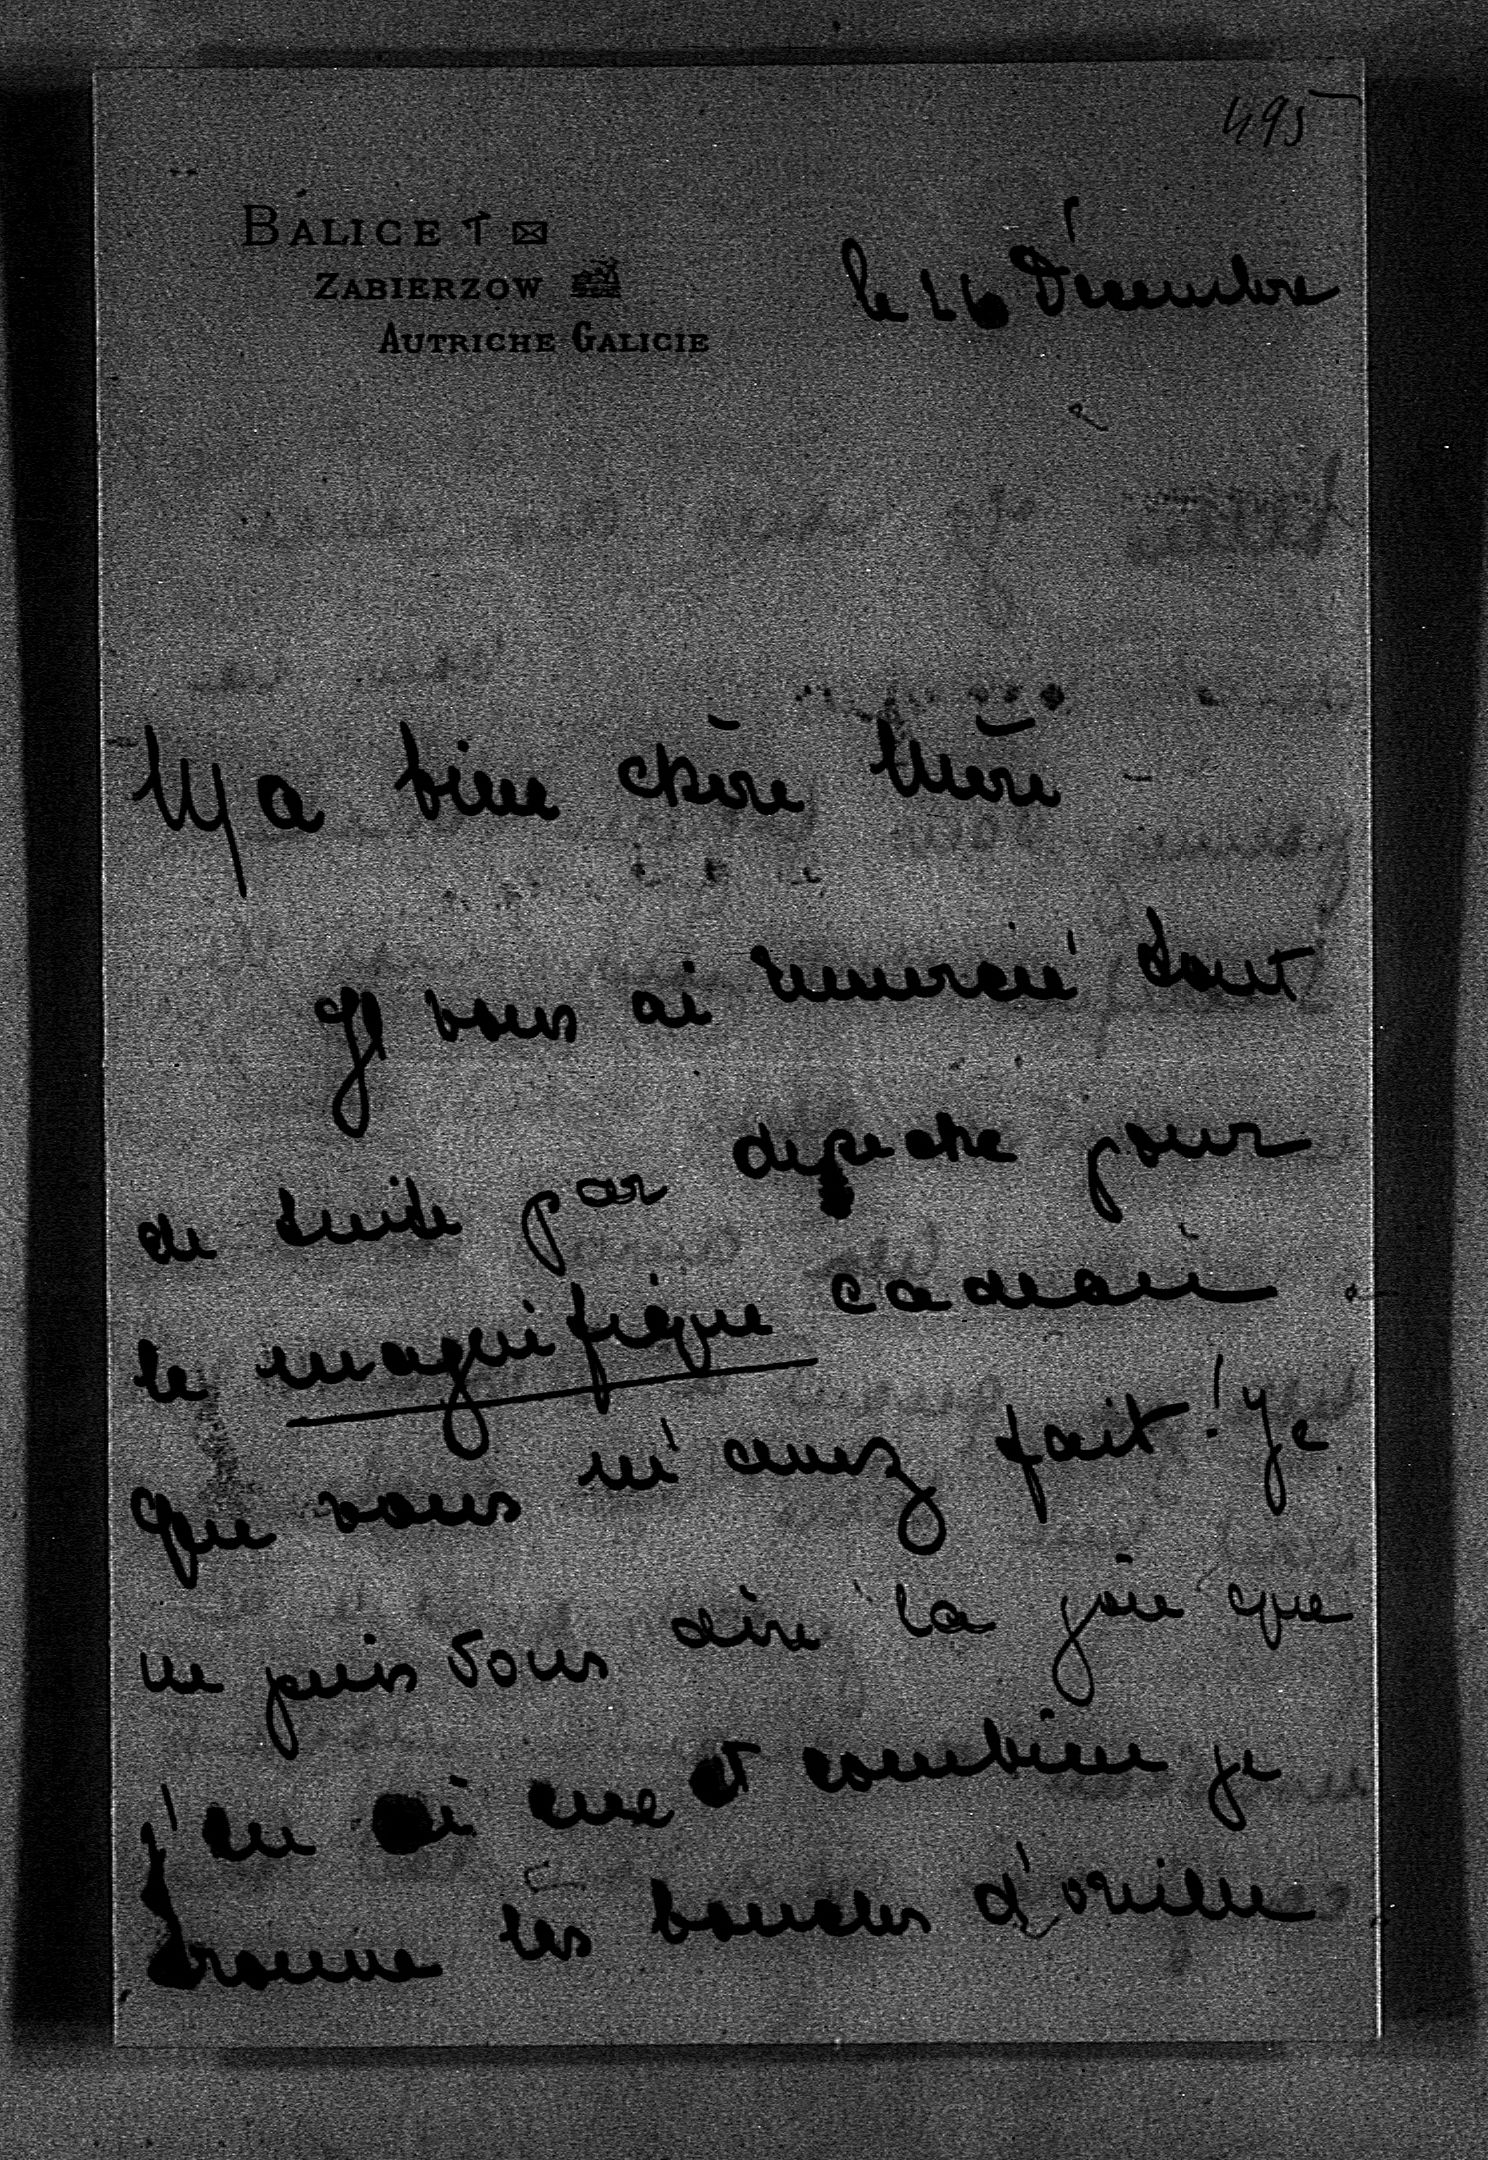 495
BALICE
ZABIERZOW
AUTRICHE GALICIE
le 16 Décembre
Ma bien chère Mère
Je vous ai remercié tout
de suite par depeche pour
le magnifique cadeau
que vous m'avez fait! Je
ne puis vous dire la joie que
j'en ai eue et combien je
trouve les boucles d'oreille